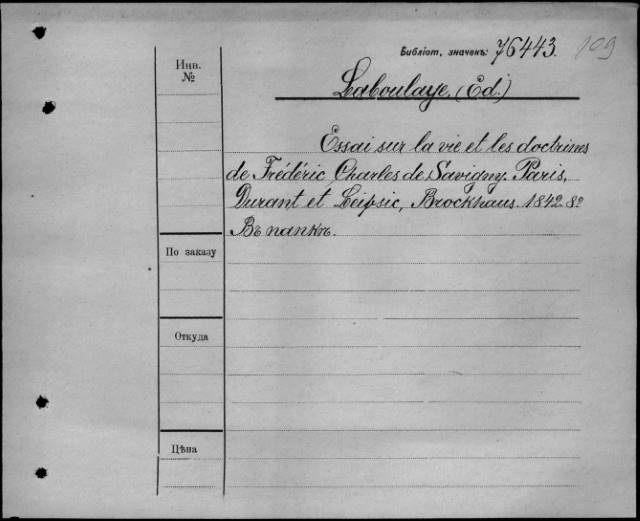 Библіот. значекъ: 76443. 109
Инв.
№
Laboulaye, (Ed.)
Essai sur la vie et les doctrines
de Frédéric Charles de Savigny. Paris,
Durant et Leipsic, Brockhaus. 1842. 8º
Въ папкѣ.
По заказу
Откуда
Цѣна